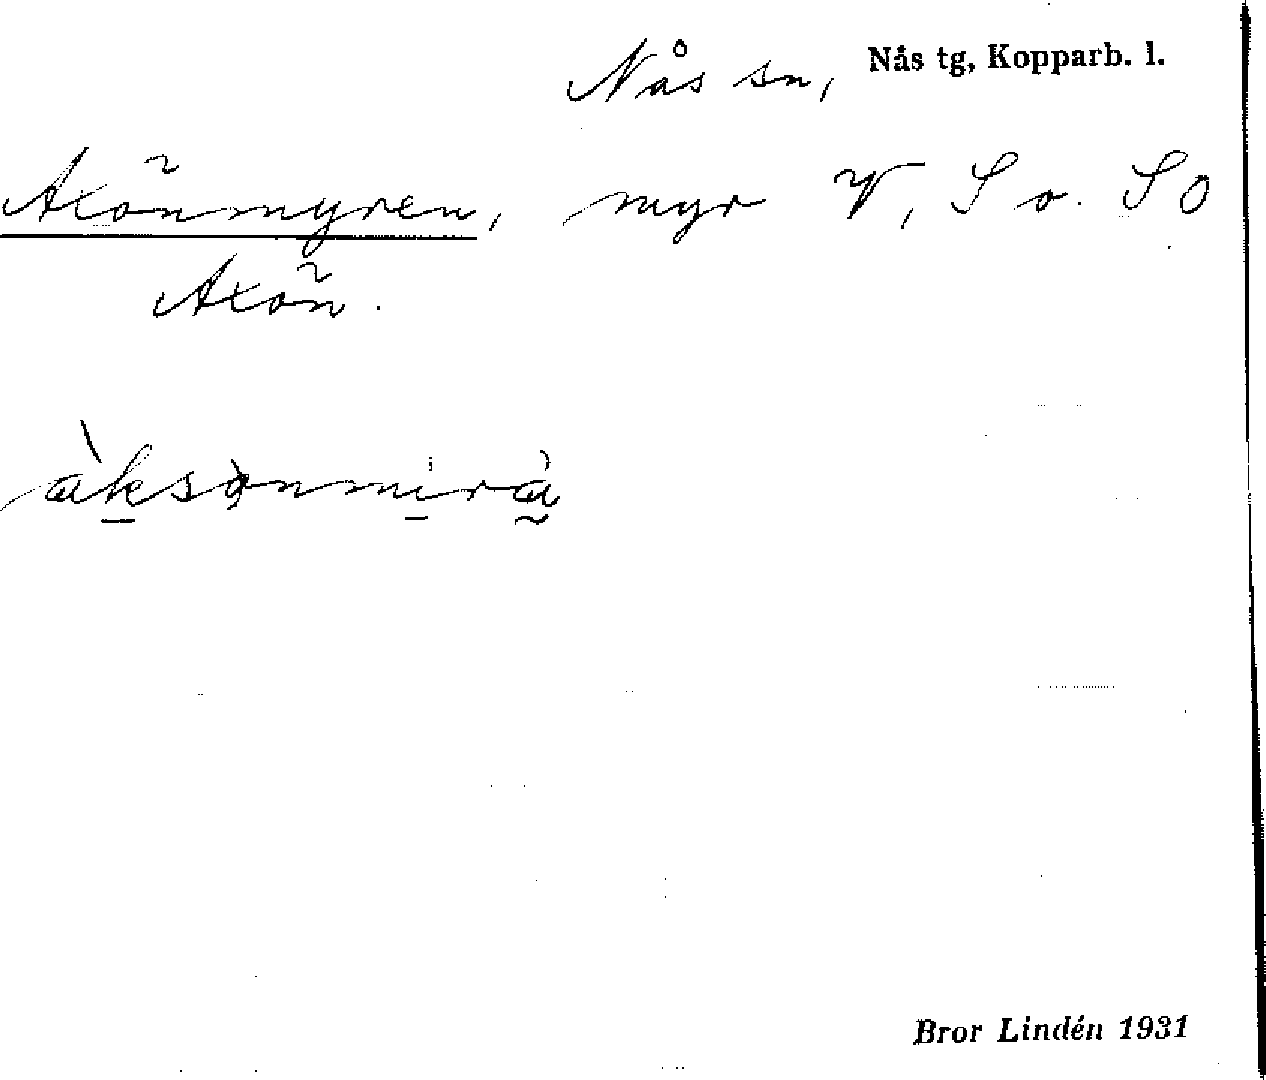 Nås sn, Nås tg, Kopparb. l.
Axönmyren, myr V, S o. SO
Axön.
àksònmirà
Bror Lindén 1931